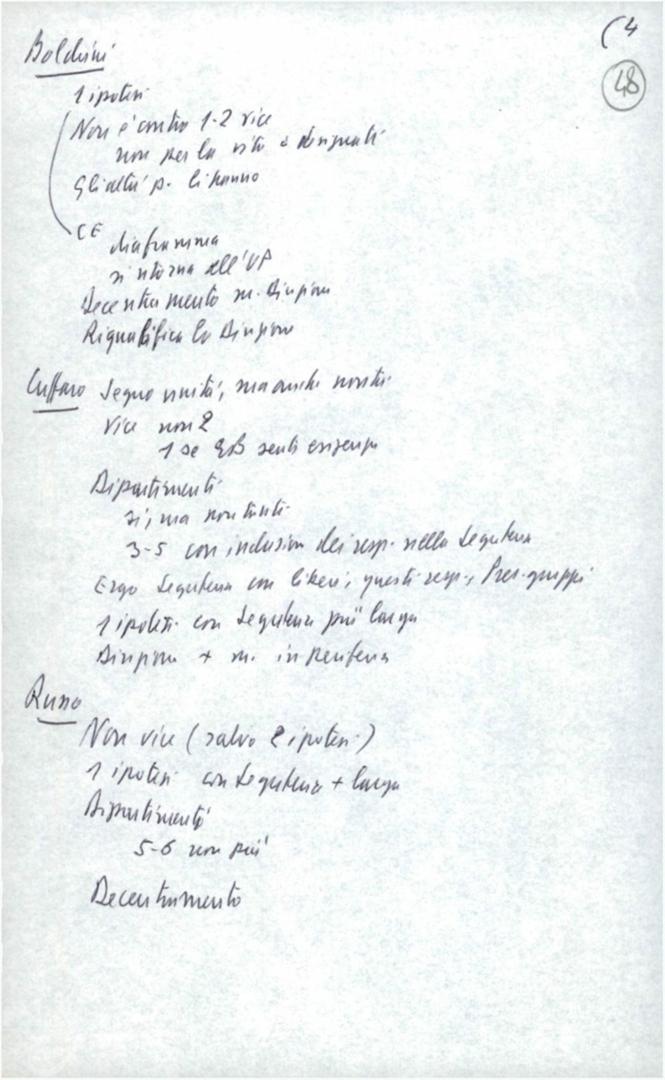 (4
48
Boldrini
1 ipotesi
Non è contro 1-2 vice
non per la
Gli altri p. li hanno
CE
diaframma
si ritorna all'UP
Decentramento m. Direzione
Riqualifica la Direzione
Cuffaro Segno unità, ma anche novità
Vice non 2
1 se EB senti esigenza
Dipartimenti
si, ma non tanti
3-5 con inclusion dei resp. nella Segreteria
Ergo Segreteria con liberi, questi resp., Pres. gruppi
1 ipotesi con Segreteria più larga
Direzione + m. in periferia
Russo
Non vice (salvo 2 ipotesi)
1 ipotesi con Segreteria + larga
Dipartimenti
5-6 non più
Decentramento